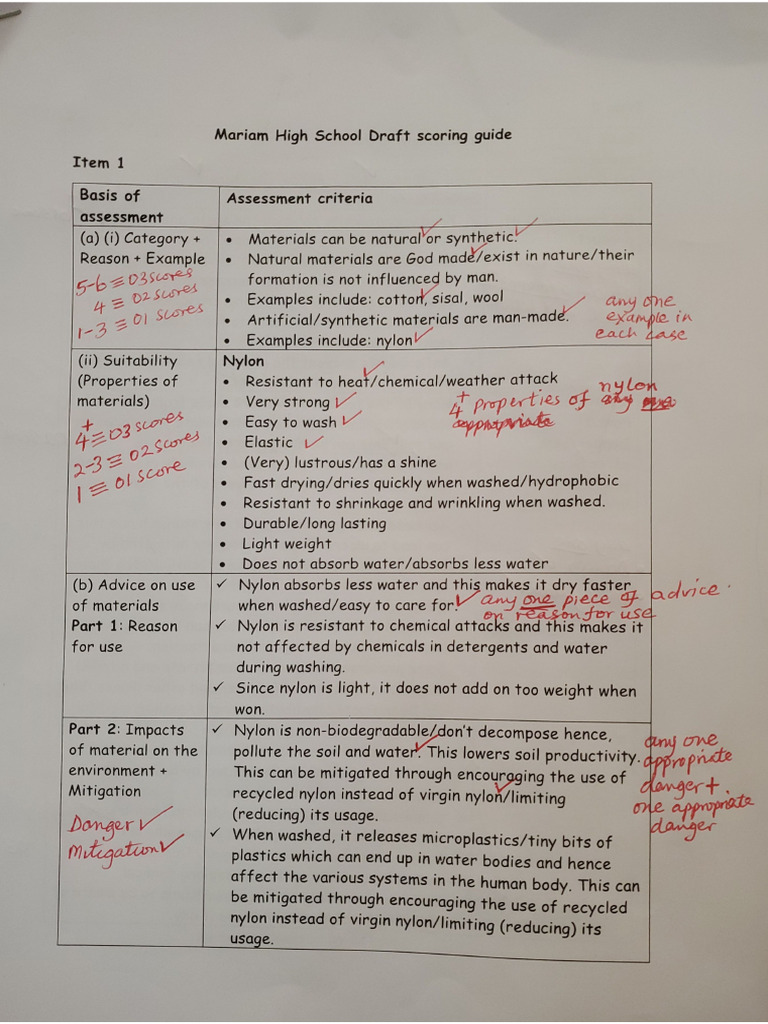 Mariam High School Draft scoring guide
Item 1
Basis of
assessment
Assessment criteria
(a) (i) Category +
Reason + Example
5-6 ≡ 03 scores
4 ≡ 02 scores
1-3 ≡ 01 scores
• Materials can be natural or synthetic.
• Natural materials are God made/exist in nature/their
formation is not influenced by man.
• Examples include: cotton, sisal, wool
• Artificial/synthetic materials are man-made.
• Examples include: nylon
any one
example in
each case
(ii) Suitability
(Properties of
materials)
4+ ≡ 03 scores
2-3 ≡ 02 scores
1 ≡ 01 score
Nylon
• Resistant to heat/chemical/weather attack
• Very strong
• Easy to wash
• Elastic
• (Very) lustrous/has a shine
• Fast drying/dries quickly when washed/hydrophobic
• Resistant to shrinkage and wrinkling when washed.
• Durable/long lasting
• Light weight
• Does not absorb water/absorbs less water
4+ properties of nylon
(b) Advice on use
of materials
Part 1: Reason
for use
✓ Nylon absorbs less water and this makes it dry faster
when washed/easy to care for.
✓ Nylon is resistant to chemical attacks and this makes it
not affected by chemicals in detergents and water
during washing.
✓ Since nylon is light, it does not add on too weight when
won.
any one piece of advice.
on reason for use
Part 2: Impacts
of material on the
environment +
Mitigation
Danger ✓
Mitigation ✓
✓ Nylon is non-biodegradable/don't decompose hence,
pollute the soil and water. This lowers soil productivity.
This can be mitigated through encouraging the use of
recycled nylon instead of virgin nylon/limiting
(reducing) its usage.
✓ When washed, it releases microplastics/tiny bits of
plastics which can end up in water bodies and hence
affect the various systems in the human body. This can
be mitigated through encouraging the use of recycled
nylon instead of virgin nylon/limiting (reducing) its
usage.
any one
appropriate
danger +
one appropriate
danger